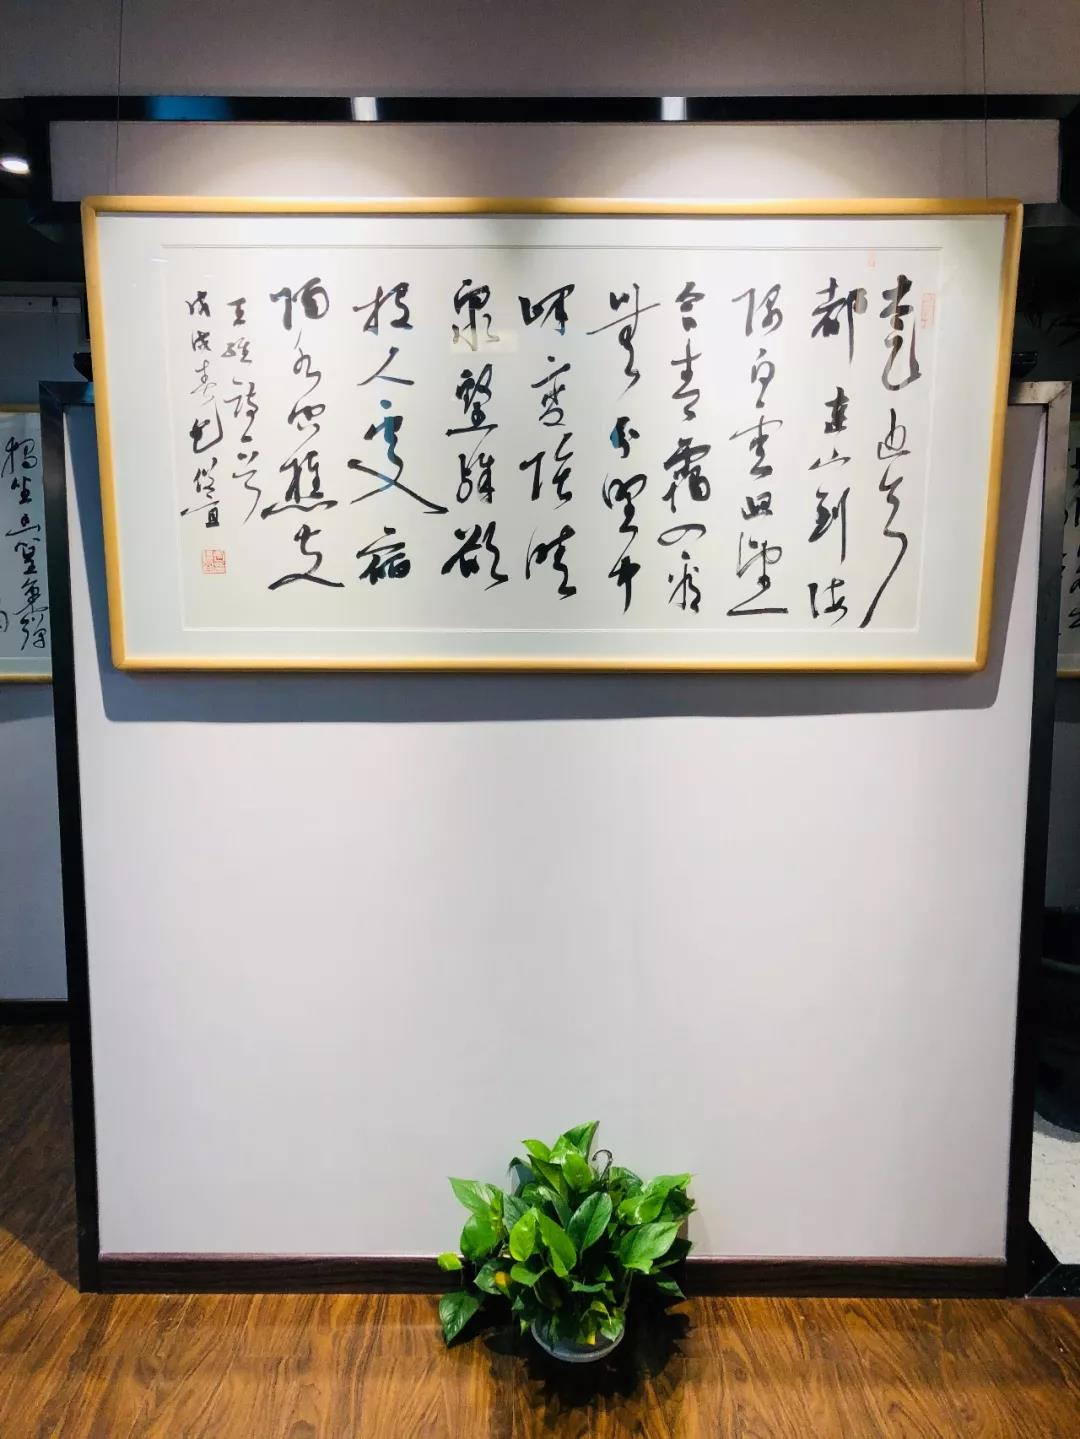 太乙近天
都連山到海
隅白雲迴望
合青靄入看
無分野中
峰變陰晴
衆壑殊欲
投人處宿
隔水問樵夫
王維詩一首
戊戌春
獨坐幽篁